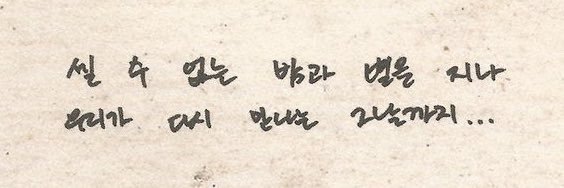 셀 수 없는 밤과 별을 지나
우리가 다시 만나는 그날까지...